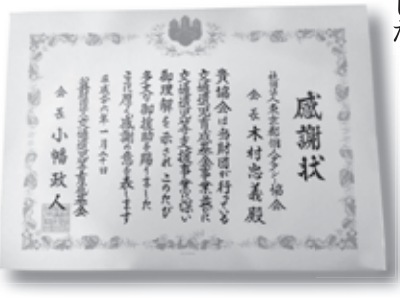 感謝状
社団法人東京都個人タクシー協会
会長 木村忠義殿
貴協会は当財団が行っている
交通遺児育成基金事業並に
交通遺児等支援事業に深い
御理解を示されこのたび
多大の御援助を賜りました
ここに厚く感謝の意を表します
平成廿六年一月二十日
公益財団法人交通遺児等育成基金
会長 小幡政人